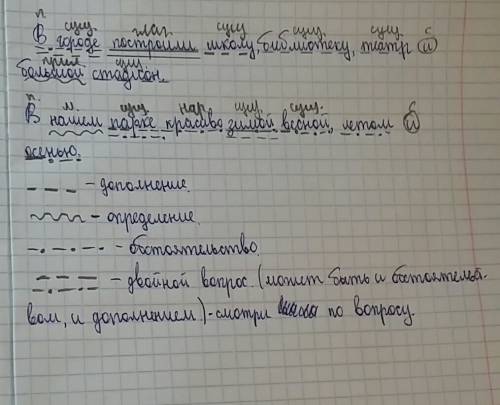 п. сущ. глаг сущ сущ. сущ. с
В городе построили школу, библиотеку, театр и
прил сущ.
большой стадион.
п. м. сущ нар сущ. сущ. с
В нашем парке красиво зимой весной, летом и
осенью.
– дополнение.
– определение.
– обстоятельство.
– двойной вопрос. (может быть и обстоятельст-
вом, и дополнением.) - смотри по вопросу.